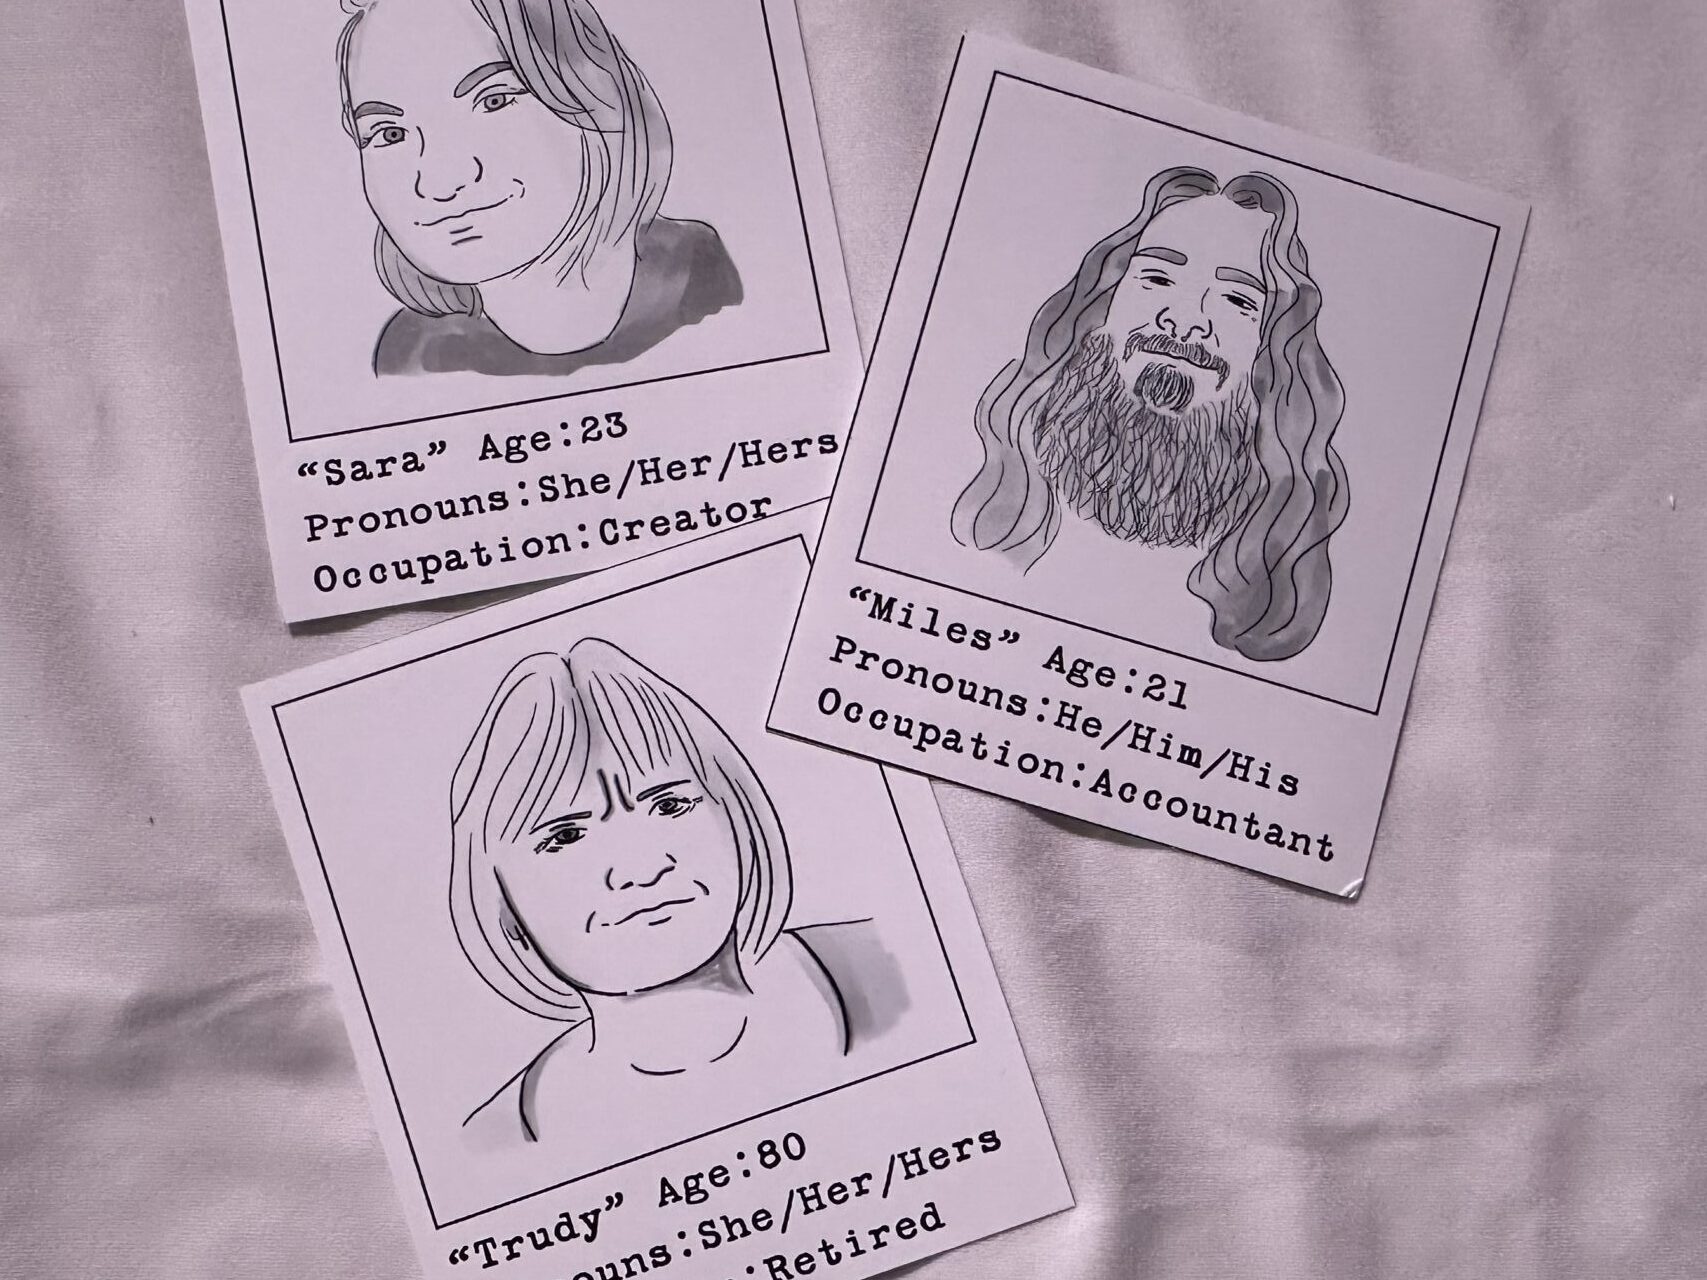 “Sara” Age:23
Pronouns:She/Her/Hers
Occupation:Creator
“Miles” Age:21
Pronouns:He/Him/His
Occupation:Accountant
“Trudy” Age:80
ouns:She/Her/Hers
:Retired